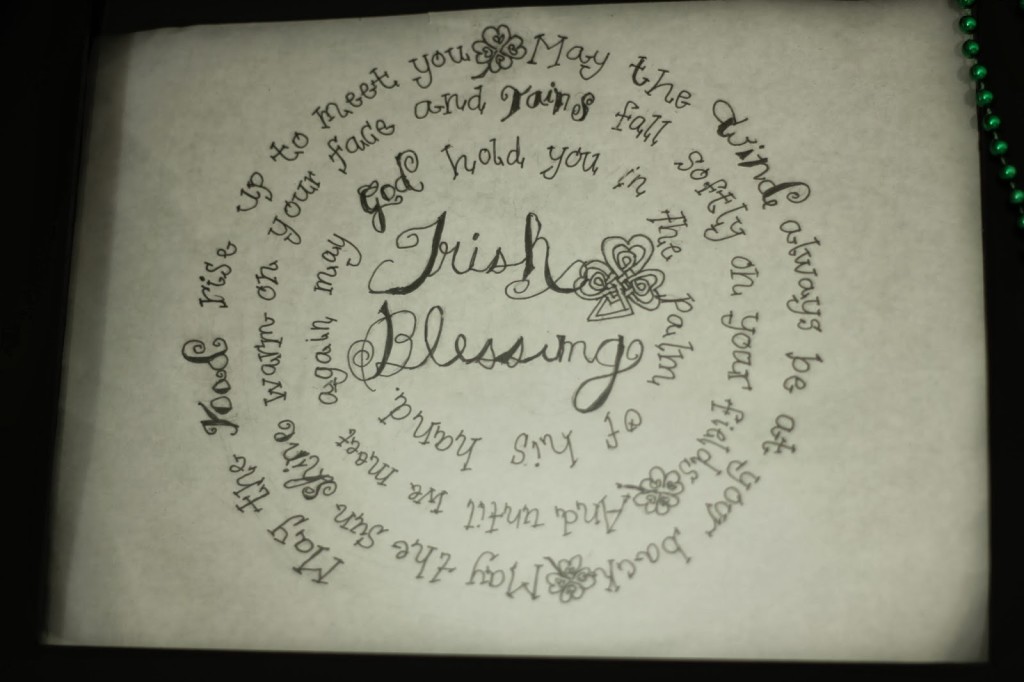 Irish
Blessing
May the road rise up to meet you May the wind always be at your back May the sun shine warm on your face and rains fall softly on your fields And until we meet again may God hold you in the palm of his hand.